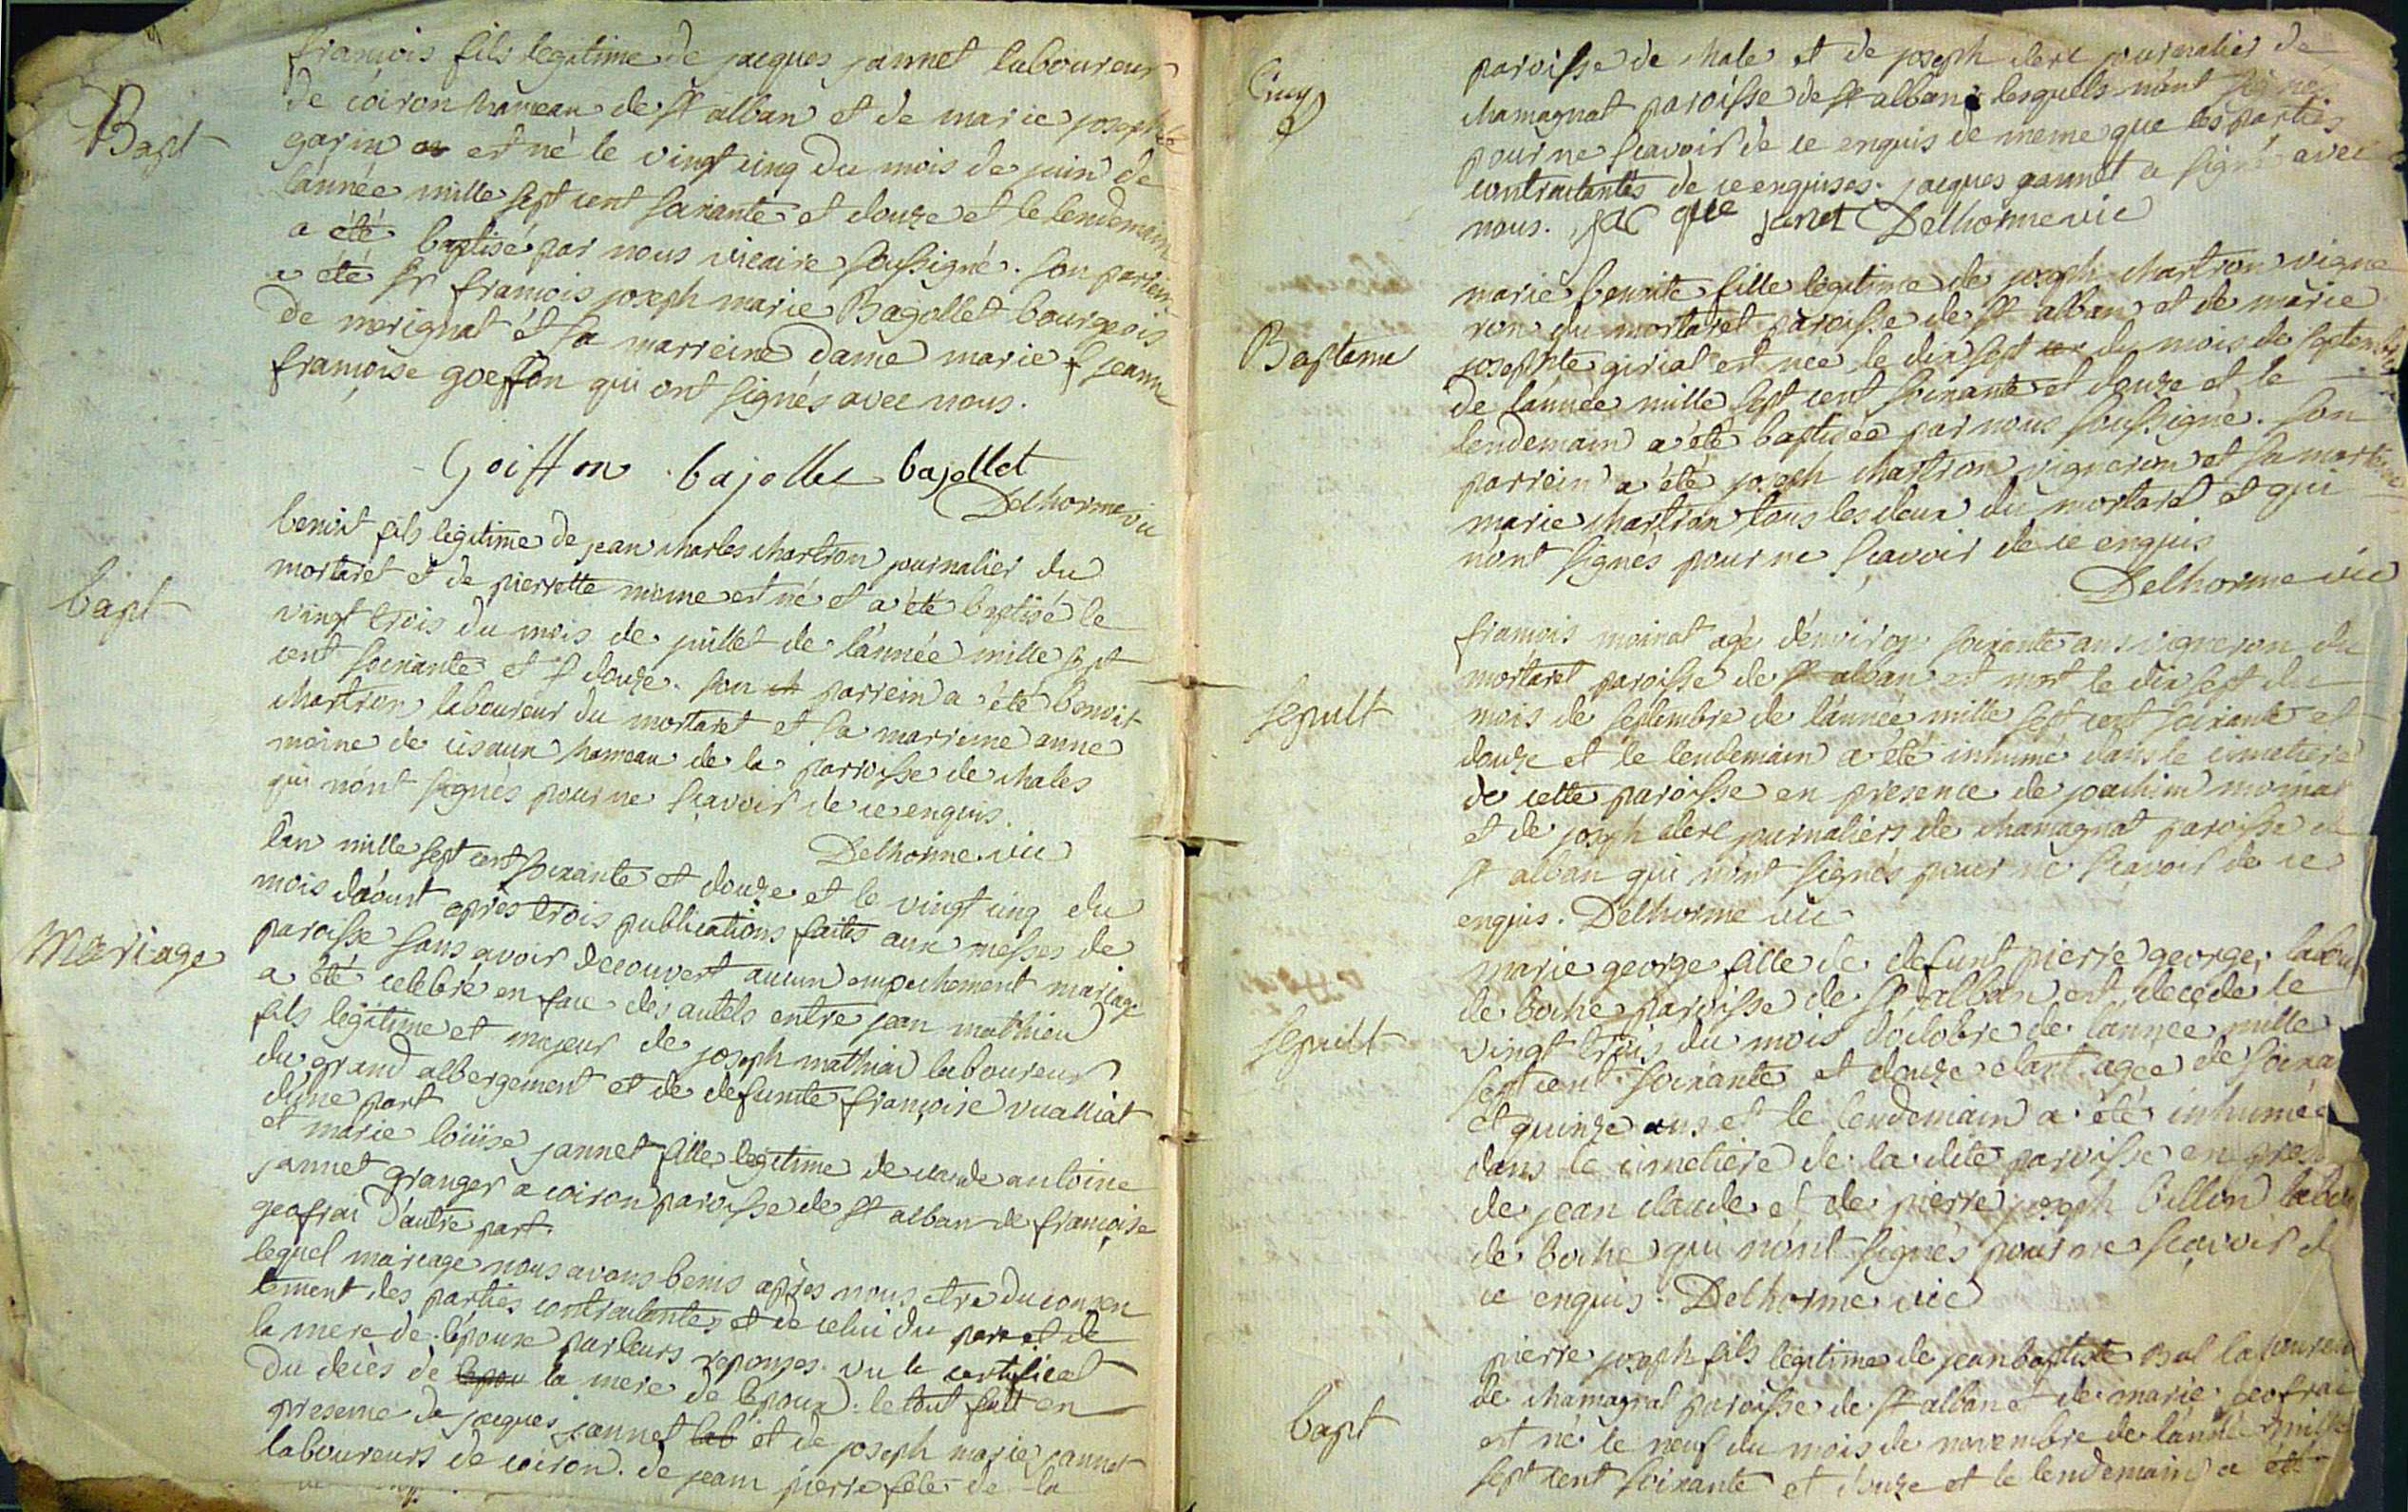 Bapt
françois fils legitime de jacques jannet laboureur
de coiron hameau de st alban et de marie josephte
garin est né le vingt cinq du mois de juin de
l'année mille sept cent soixante et douze et le lendemain
a été baptisé par nous vicaire soussigné. son parrein
a été sr françois joseph marie Bagollet bourgeois
de merignat et sa marreine dame marie jeanne
françoise goeffon qui ont signés avec nous.
Goiffon bajollet bajollet
Delhorme vic
bapt
benoit fils legitime de jean charles chartron journalier du
mortaret et de pierrette moine est né et a été baptisé le
vingt trois du mois de juillet de l'année mille sept
cent soixante et douze. son parrein a été benoit
chartron laboureur du mortaret et sa marreine anne
moine de cisaux hameau de la parroisse de chales
qui n'ont signés pour ne sçavoir de ce enquis.
Delhorme vic
Mariage
l'an mille sept cent soixante et douze et le vingt cinq du
mois d'aoust après trois publications faites aux messes de
paroisse sans avoir decouvert aucun empechement mariage
a été celebré en face des autels entre jean mathieu
fils légitime et majeur de joseph mathieu laboureur
du grand albergement et de defunte françoise vualliat
d'une part
et marie loüise jannet fille legitime de claude antoine
jannet granger a coiron paroisse de st alban de françoise
geofrai d'autre part.
lequel mariage nous avons benis après nous etre du consen
tement des parties contractantes et de celui du pere et de
la mere de l'epouse par leurs reponses. vu le certificat
du decès de la mere de l'epoux. le tout fait en
presence de jacques jannet lab et de joseph marie jannet
laboureurs de coiron. de jean pierre de la
Cinq
paroisse de chale et de joseph clerc journalier de
chamagnat paroisse de st alban lesquels n'ont signé
pour ne scavoir de ce enquis de meme que les parties
contractantes de ce enquises. jacques jannet a signé avec
nous. jac que janet Delhorme vic
Bapteme
marie benoite fille legitime de joseph chartron vigne
ron du mortaret paroisse de st alban et de marie
josephte girial est nee le dix sept du mois de septembre
de l'année mille sept cent soixante et douze et le
lendemain a été baptisée par nous soussigné. son
parrein a été joseph chartron vigneron et sa marreine
marie chartron tous les deux du mortaret et qui
n'ont signés pour ne sçavoir de ce enquis
Delhorme vic
sepult
françois moinat agé d'environ soixante ans vigneron du
mortaret paroisse de st alban est mort le dix sept du
mois de septembre de l'année mille sept cent soixante et
douze et le lendemain a été inhumé dans le cimetiere
de cette paroisse en presence de joachim moinat
et de joseph clerc journaliers de chamagnat paroisse de
st alban qui n'ont signés pour ne scavoir de ce
enquis. Delhorme vic
sepult
marie george fille de defunt pierre george labou
de boche paroisse de st alban est decedée le
vingt trois du mois d'octobre de l'année mille
sept cent soixante et douze etant agée de soixa
et quinze ans et le lendemain a été inhumée
dans le cimetiere de la dite paroisse en pres
de jean claude et de pierre joseph billion labou
de boche qui n'ont signés pour ne sçavoir d
ce enquis. Delhorme vic
bapt
pierre joseph fils légitime de jean baptiste Bal laboureur
de chamagnat paroisse de st alban et de marie geofrai
est né le neuf du mois de novembre de l'année mille
sept cent soixante et douze et le lendemain a été